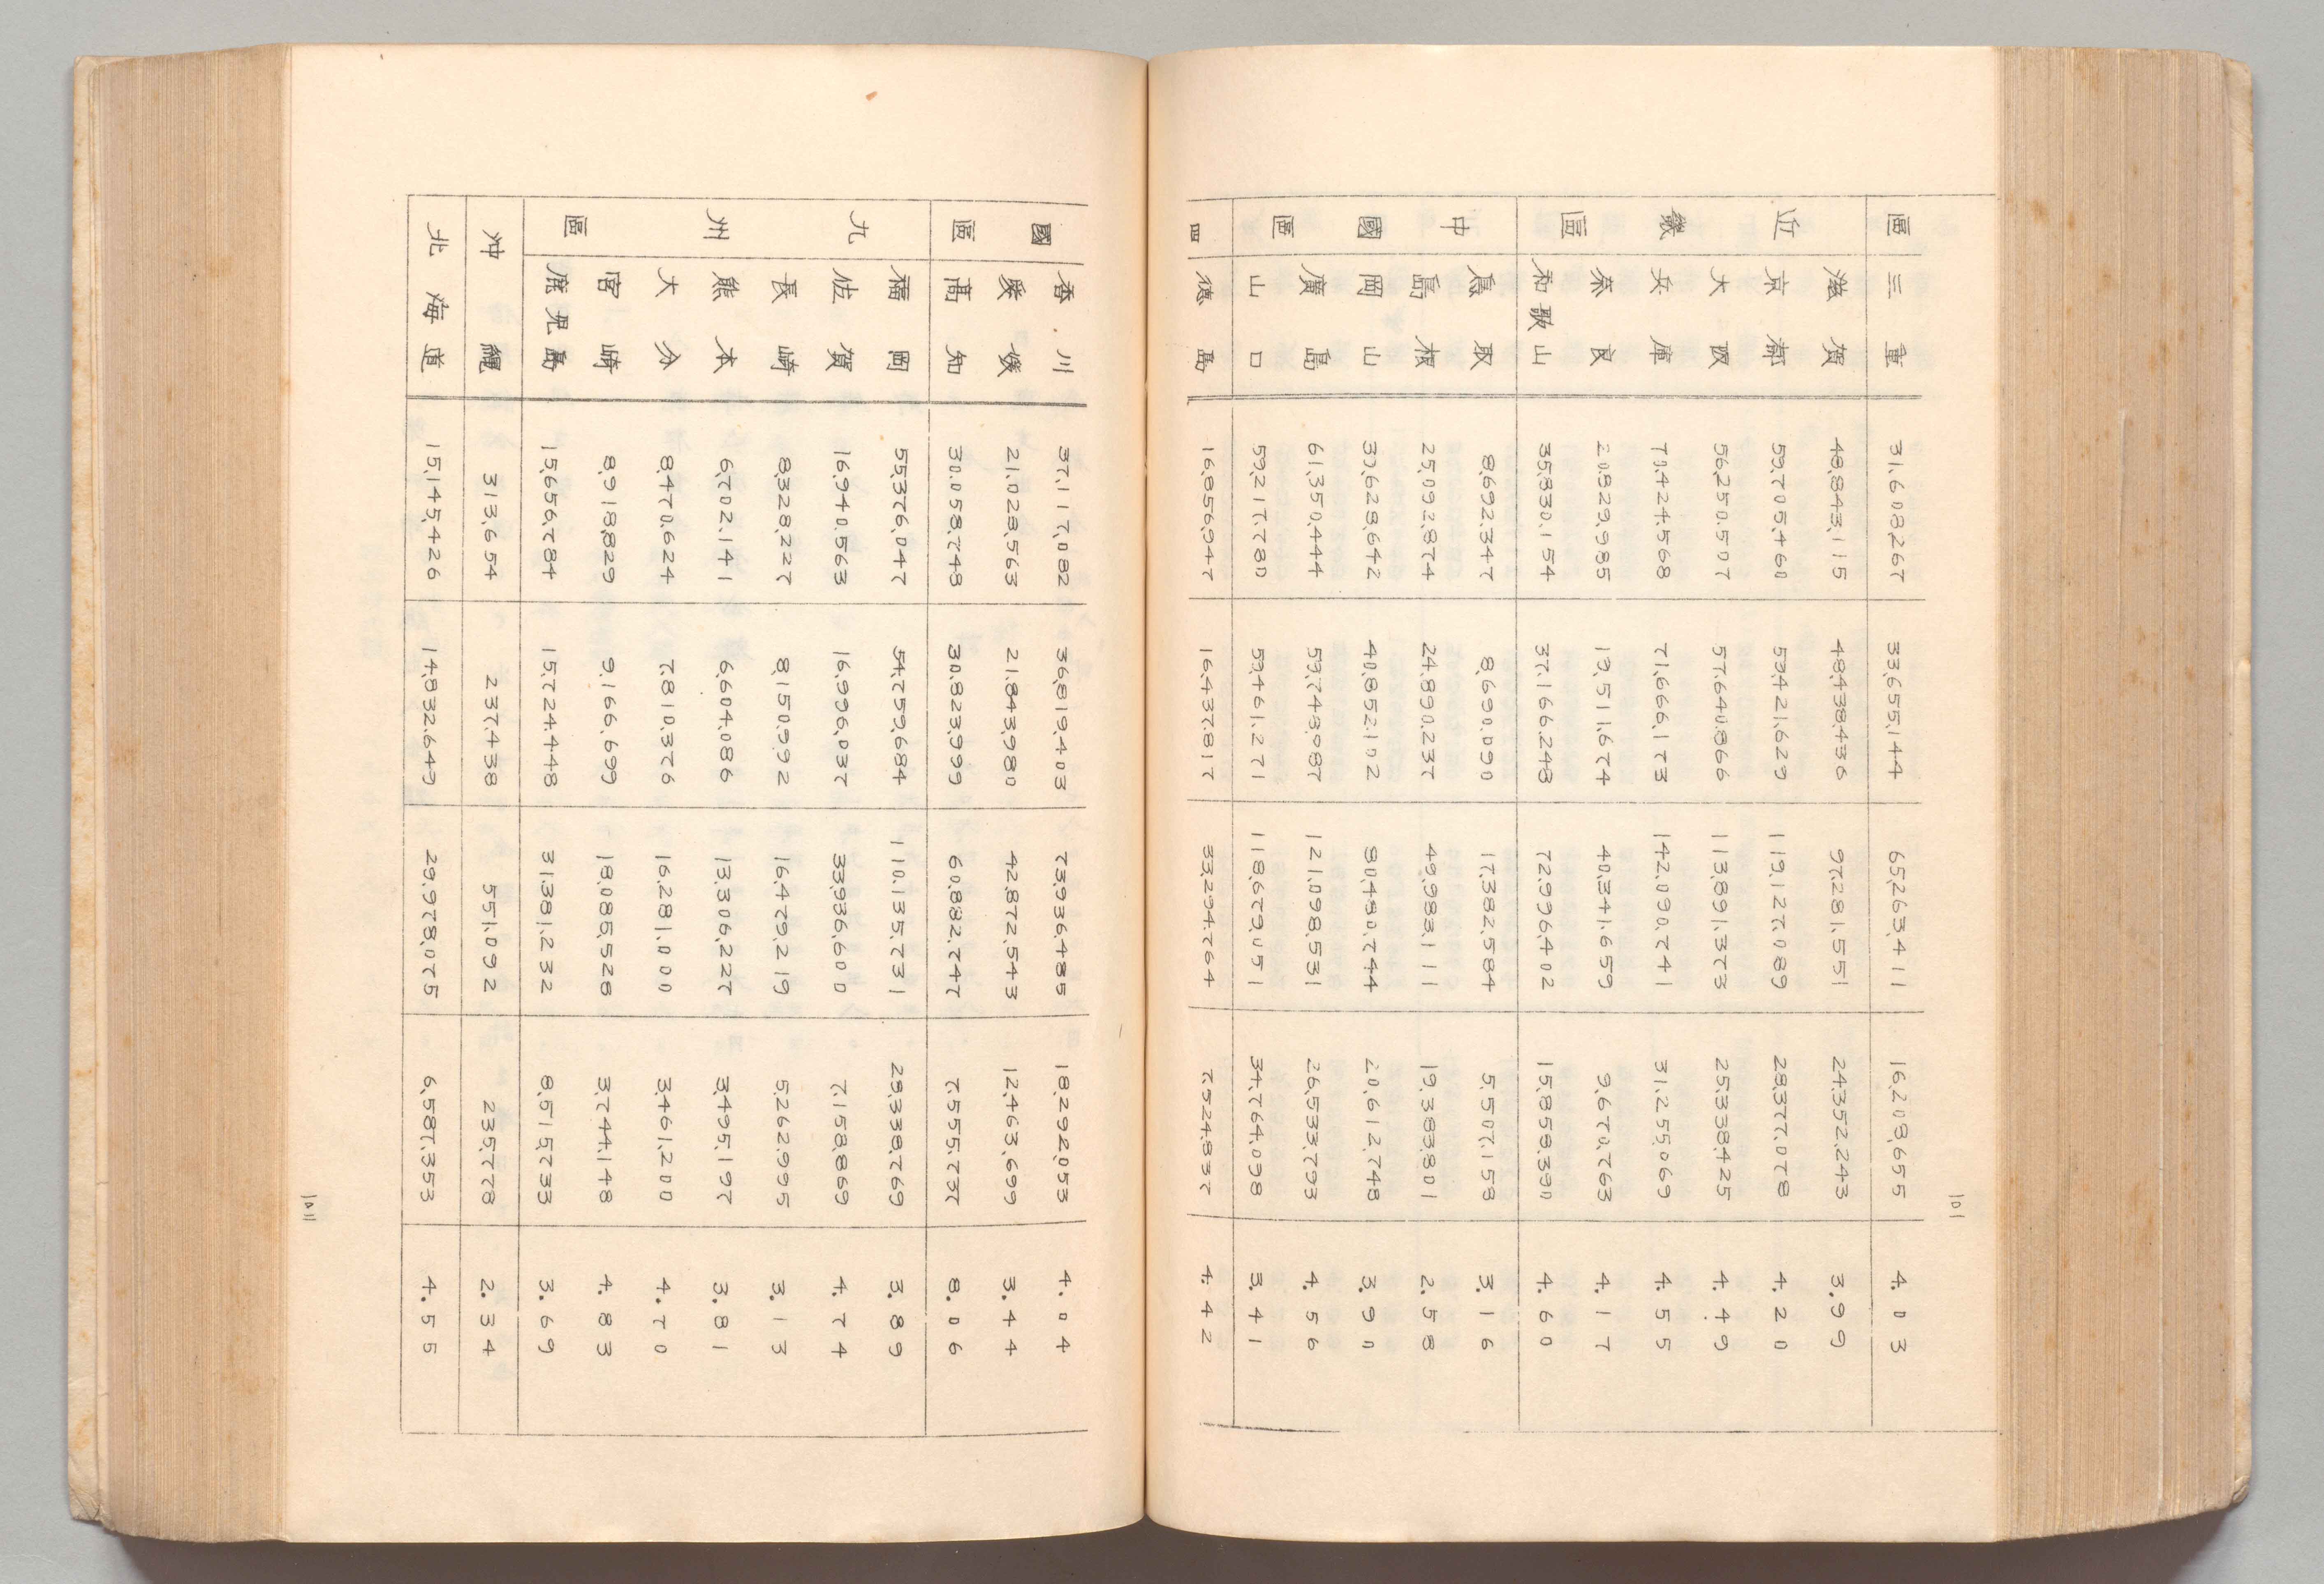 區 三重 31,608,267 33,655,144 65,263,411 16,203,655 4.03
近畿區
滋賀 48,843,115 48,438,436 97,281,551 24,352,243 3.99
京都 59,705,460 59,421,629 119,127,089 28,377,078 4.20
大阪 56,250,507 57,640,866 113,891,373 25,338,425 4.49
兵庫 70,424,568 71,666,173 142,090,741 31,255,069 4.55
奈良 20,829,985 19,511,674 40,341,659 9,670,763 4.17
和歌山 35,830,154 37,166,248 72,996,402 15,859,390 4.60
中國區
鳥取 8,692,347 8,690,090 17,382,584 5,507,158 3.16
島根 25,092,874 24,890,237 49,983,111 19,383,801 2.58
岡山 39,628,642 40,852,102 80,480,744 20,612,748 3.90
廣島 61,350,444 59,748,087 121,098,531 26,533,793 4.56
山口 59,217,780 59,461,271 118,679,051 34,764,098 3.41
四 徳島 16,856,947 16,437,817 33,294,764 7,524,837 4.42
一〇一
國區
香川 37,117,082 36,819,403 73,936,485 18,292,053 4.04
愛媛 21,028,563 21,843,980 42,872,543 12,463,699 3.44
高知 30,058,748 30,823,999 60,882,747 7,555,737 8.06
九州區
福岡 55,376,047 54,759,684 110,135,731 28,338,769 3.89
佐賀 16,940,563 16,996,037 33,936,600 7,158,869 4.74
長崎 8,328,227 8,150,992 16,479,219 5,262,995 3.13
熊本 6,702,141 6,604,086 13,306,227 3,495,197 3.81
大分 8,470,624 7,810,376 16,281,000 3,461,200 4.70
宮崎 8,918,829 9,166,699 18,085,528 3,744,148 4.83
鹿児島 15,656,784 15,724,448 31,381,232 8,515,733 3.69
沖縄 313,654 237,438 551,092 235,778 2.34
北海道 15,145,426 14,832,649 29,978,075 6,587,353 4.55
一〇二